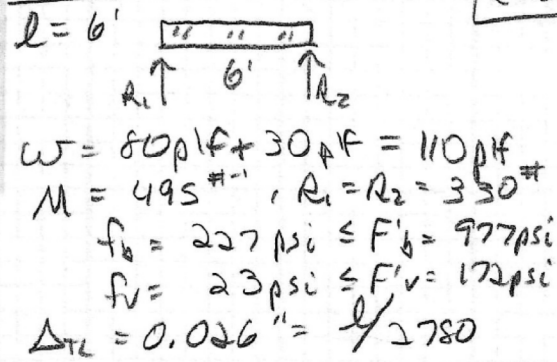 l = 6'
6'
R₁ R₂
w = 80plf + 30plf = 110plf
M = 495 #-', R₁ = R₂ = 330#
fb = 227 psi ≤ F'b = 977psi
fv = 23psi ≤ F'v = 172psi
ΔTL = 0.026" = l/2780